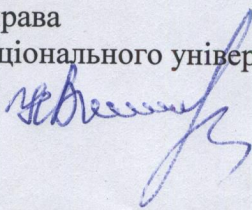 рава
ціонального універ